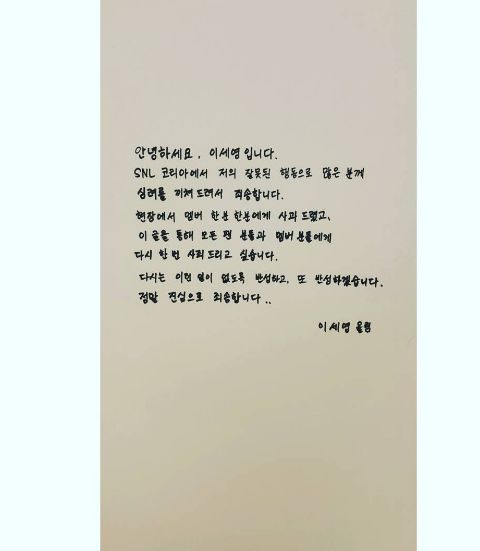 안녕하세요, 이세영입니다.
SNL 코리아에서 저의 잘못된 행동으로 많은 분께
심려를 끼쳐드려서 죄송합니다.
현장에서 멤버 한분 한분에게 사과 드렸고,
이 글을 통해 모든 팬 분들과 멤버분들에게
다시 한번 사죄드리고 싶습니다.
다시는 이런 일이 없도록 반성하고, 또 반성하겠습니다.
정말 진심으로 죄송합니다..
이세영 올림